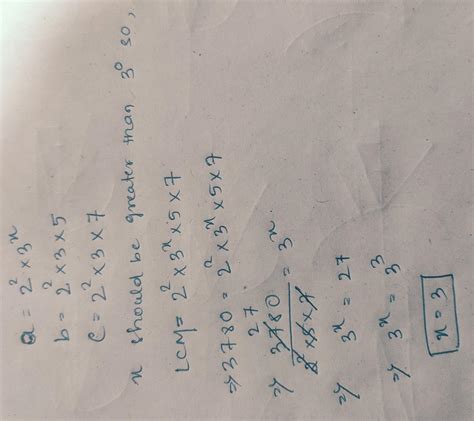 a = 2² × 3ⁿ
b = 2² × 3 × 5
c = 2² × 3 × 7
n should be greater than 3⁰ so,
LCM = 2² × 3ⁿ × 5 × 7
⇒ 3780 = 2² × 3ⁿ × 5 × 7
27
⇒ 3780 / 2² × 5 × 7 = 3ⁿ
⇒ 3ⁿ = 27
⇒ 3ⁿ = 3³
n = 3